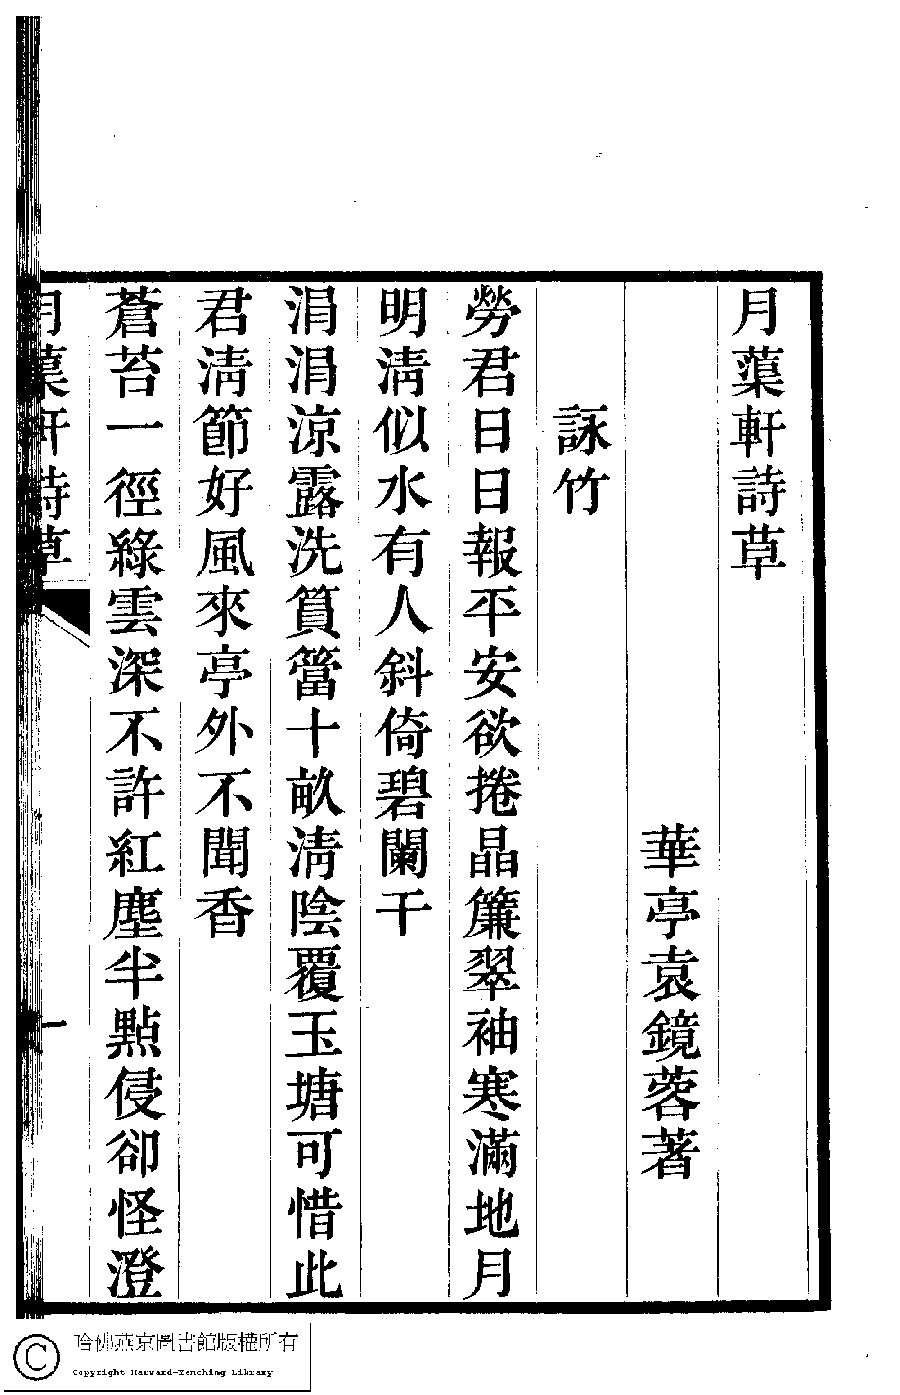 月蕖軒詩草
華亭袁鏡蓉著
詠竹
勞君日日報平安欲捲晶簾翠袖寒滿地月
明淸似水有人斜倚碧闌干
涓涓涼露洗篔簹十畝淸陰覆玉塘可惜此
君淸節好風來亭外不聞香
蒼苔一徑綠雲深不許紅塵半點侵卻怪澄
月蕖軒詩草
一
哈佛燕京圖書館版權所有
Copyright Harvard-Yenching Library